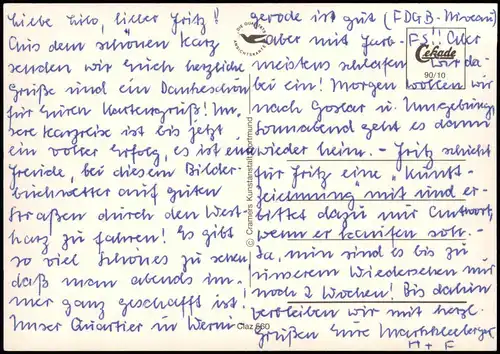 Liebe Lilo, lieber Fritz!
Aus dem schönen Harz
senden wir Euch herzliche
Grüße und ein Dankeschön
für Euren Kartengruß! Un-
sere Harzreise ist bis jetzt
ein voller Erfolg, es ist eine
Freude, bei diesem Bilder-
buchwetter auf guten
Straßen durch den West-
harz zu fahren! Es gibt
so viel Schönes zu sehen,
daß man abends im-
mer ganz geschafft ist!
Unser Quartier in Werni-
gerode ist gut (FDGB-Niveau)
aber mit Farb-FS!! Aber
meistens schlafen wir da-
bei ein! Morgen wollen wir
nach Goslar u. Umgebung,
sonnabend geht es dann
wieder heim. - Fritz schickt
für Fritz eine "Kunst-
zeichnung" mit und er-
bittet dazu nur Antwort,
wenn er kaufen soll. -
Ja, nun sind es bis zu
unserem Wiedersehen nur
noch 2 Wochen! Bis dahin
verbleiben wir mit herzl.
Grüßen Eure Markkleeberger
H + F
DIE BUNTE
ANSICHTSKARTE
Cekade
90/10
© Cramers Kunstanstalt Dortmund
Claz 560